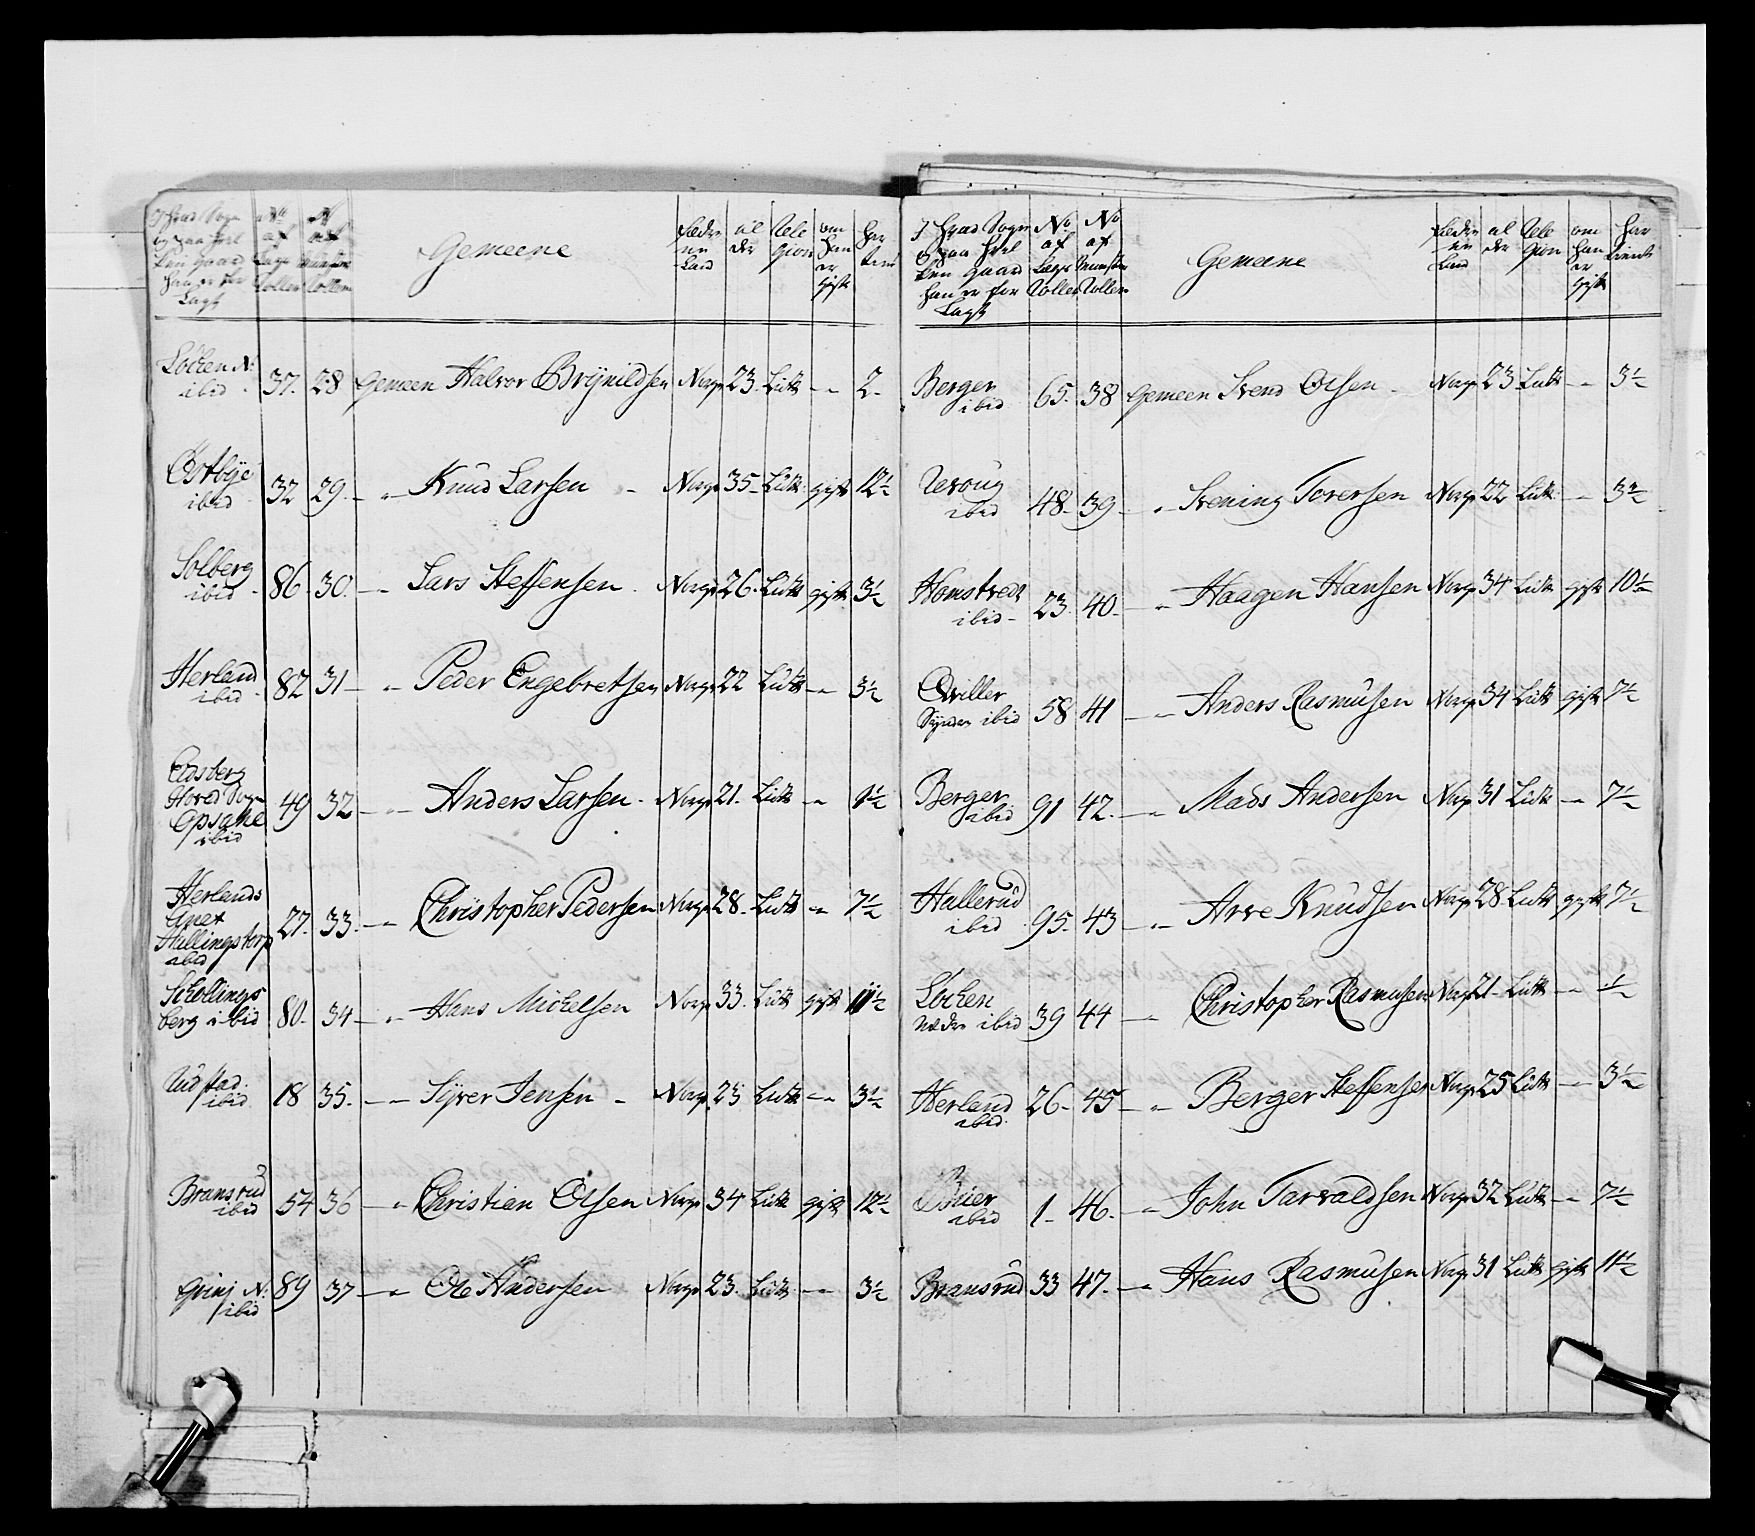 I hvad Sogn og paa hvilken Gaard han er for Lagt | No af Lægs Rollen | No af Munster Rollen | Gemeene | Fædrene Land | alder | Religion | om han er gift | har tient
Løchen N: ibid | 37. | 28 | Gemeen Halvor Brÿnildsen | Norge | 23. | Luth | - | 2.
Østbÿe ibid | 32 | 29. | Knud Larsen | Norge | 35 | Luth | gift | 12½
Solberg ibid | 86 | 30. | Lars Steffensen | Norge | 26. | Luth | gift | 3½
Herland ibid | 82 | 31 | Peder Engebretsen | Norge | 22 | Luth | - | 3½
Eidsberg Hoved Sogn Opsahle ibid | 49 | 32 | Anders Larsen | Norge | 21. | Luth | - | 1½
Herlands Anex Hallingstorp ibid | 27. | 33. | Christopher Pedersen | Norge | 28. | Luth | - | 7½
Schollingsberg ibid | 80. | 34 | Hans Michelsen | Norge | 33. | Luth | gift | 11½
Rudstad ibid | 18 | 35. | Sÿver Jensen | Norge | 23 | Luth | - | 3½
Bransrud ibid | 54 | 36 | Christian Olsen | Norge | 34 | Luth | gift | 12½
Grini N. ibid | 89 | 37 | Ole Andersen | Norge | 23. | Luth | - | 3½
I hvad Sogn og paa hvilken Gaard han er for Lagt | No af Lægs Rollen | No af Munster Rollen | Gemeene | Fædrene Land | alder | Religion | om han er gift | har tient
Berger ibid | 65. | 38 | Gemeen Svend Olsen | Norge | 23 | Luth | - | 3½
ibid | 48. | 39 | Svening Torersen | Norge | 22 | Luth | - | 3½
Honstvedt ibid | 23. | 40. | Haagen Hansen | Norge | 34 | Luth | gift | 10½
Qviller Syndre ibid | 58 | 41 | Anders Rasmusen | Norge | 34 | Luth | gift | 7½
Berger ibid | 91 | 42. | Mads Andersen | Norge | 31 | Luth | - | 7½
Hallerud ibid | 95. | 43 | Arve Knudsen | Norge | 28 | Luth | gift | 7½
Lochen Nedre ibid | 39 | 44 | Christopher Rasmusen | Norge | 21 | Luth | - | ½
Herland ibid | 26. | 45 | Berger Steffensen | Norge | 25 | Luth | - | 3½
ibid | 1. | 46. | John Tarvaldsen | Norge | 32 | Luth | - | 7½
Bransrud | 33 | 47. | Hans Rasmusen | Norge | 31 | Luth | gift | 11½